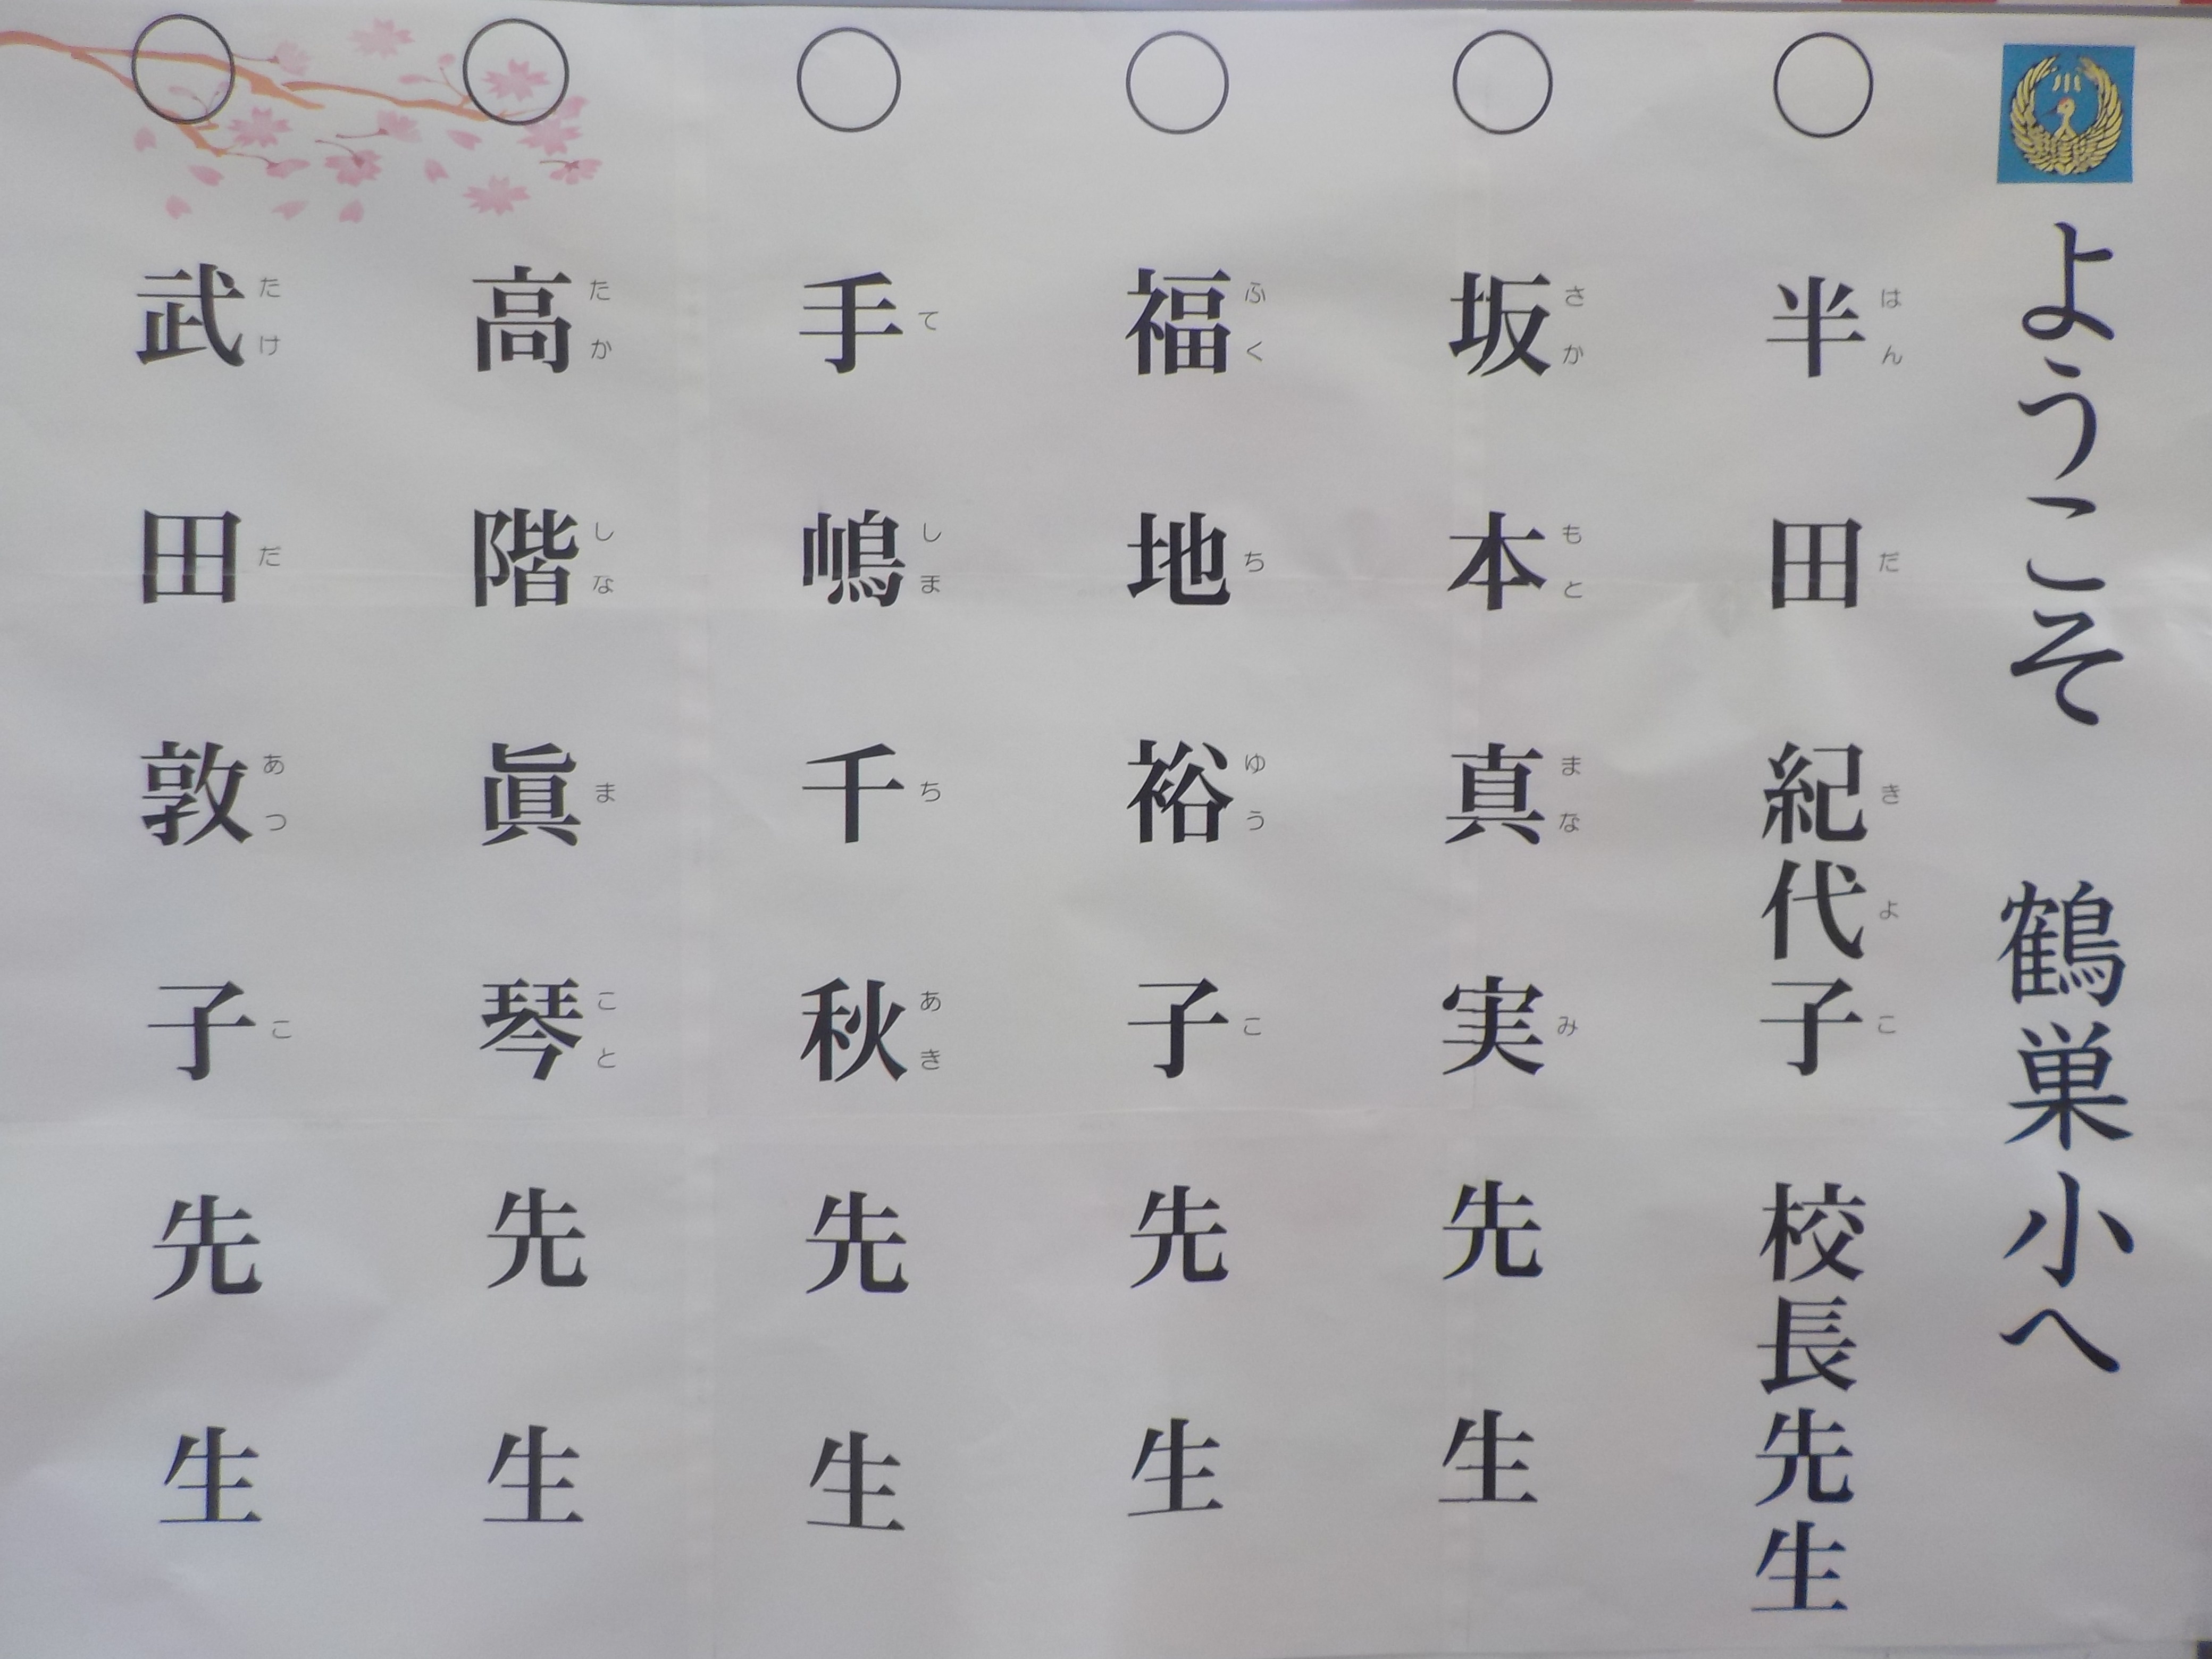 ようこそ　鶴巣小へ
○　半田　紀代子　校長先生
はんだ　きよこ
○　坂本　真実　先生
さかもと　まなみ
○　福地　裕子　先生
ふくち　ゆうこ
○　手嶋　千秋　先生
てしま　ちあき
○　高階　眞琴　先生
たかしな　まこと
○　武田　敦子　先生
たけだ　あつこ